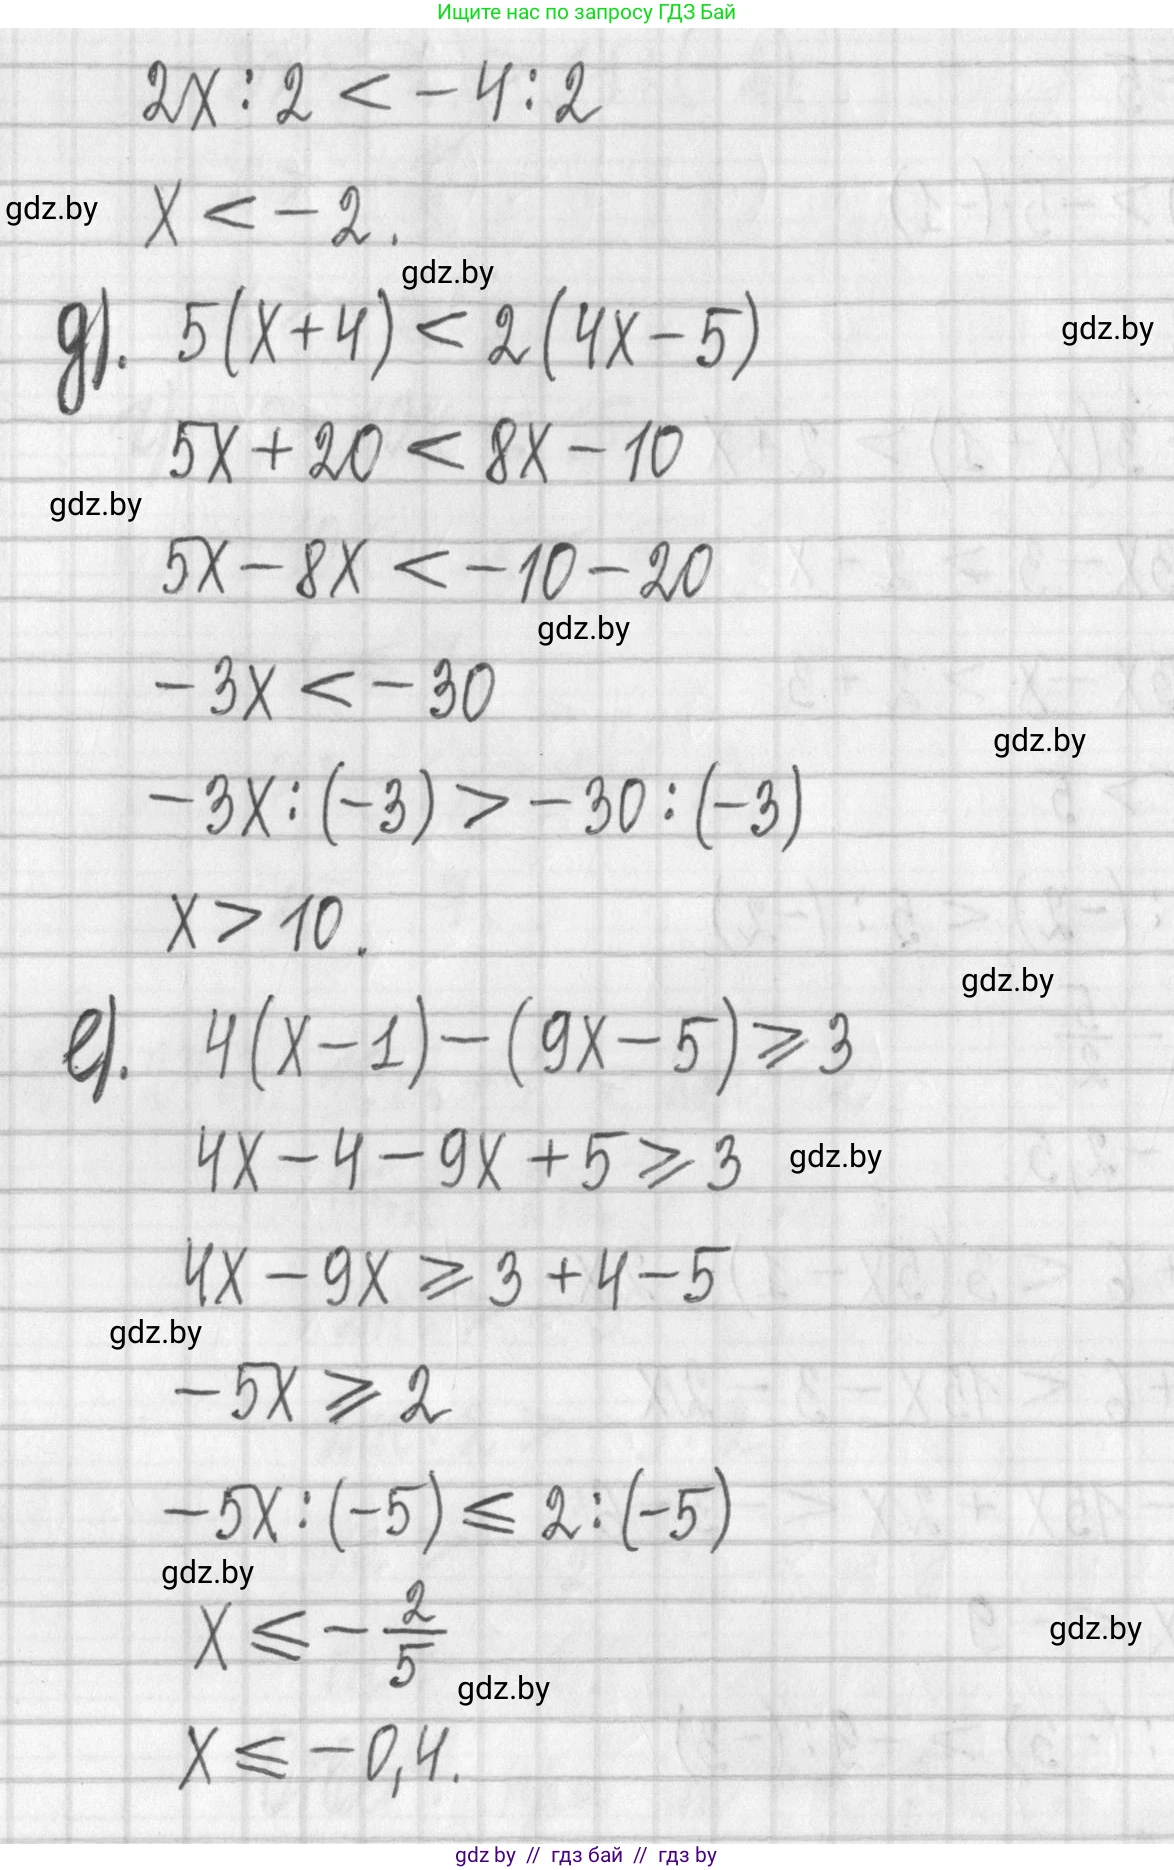 Ищите нас по запросу ГДЗ Бай
2x : 2 < - 4 : 2
gdz.by x < - 2.
gdz.by
д). 5(x+4) < 2(4x-5) gdz.by
5x + 20 < 8x - 10
gdz.by
5x - 8x < - 10 - 20
gdz.by
- 3x < - 30
gdz.by
- 3x : (-3) > - 30 : (-3)
x > 10.
gdz.by
е). 4(x-1) - (9x-5) ⩾ 3
4x - 4 - 9x + 5 ⩾ 3 gdz.by
4x - 9x ⩾ 3 + 4 - 5
gdz.by
- 5x ⩾ 2
- 5x : (-5) ⩽ 2 : (-5)
gdz.by
x ⩽ - 2/5 gdz.by
gdz.by
x ⩽ - 0,4.
gdz by // гдз бай // гдз by